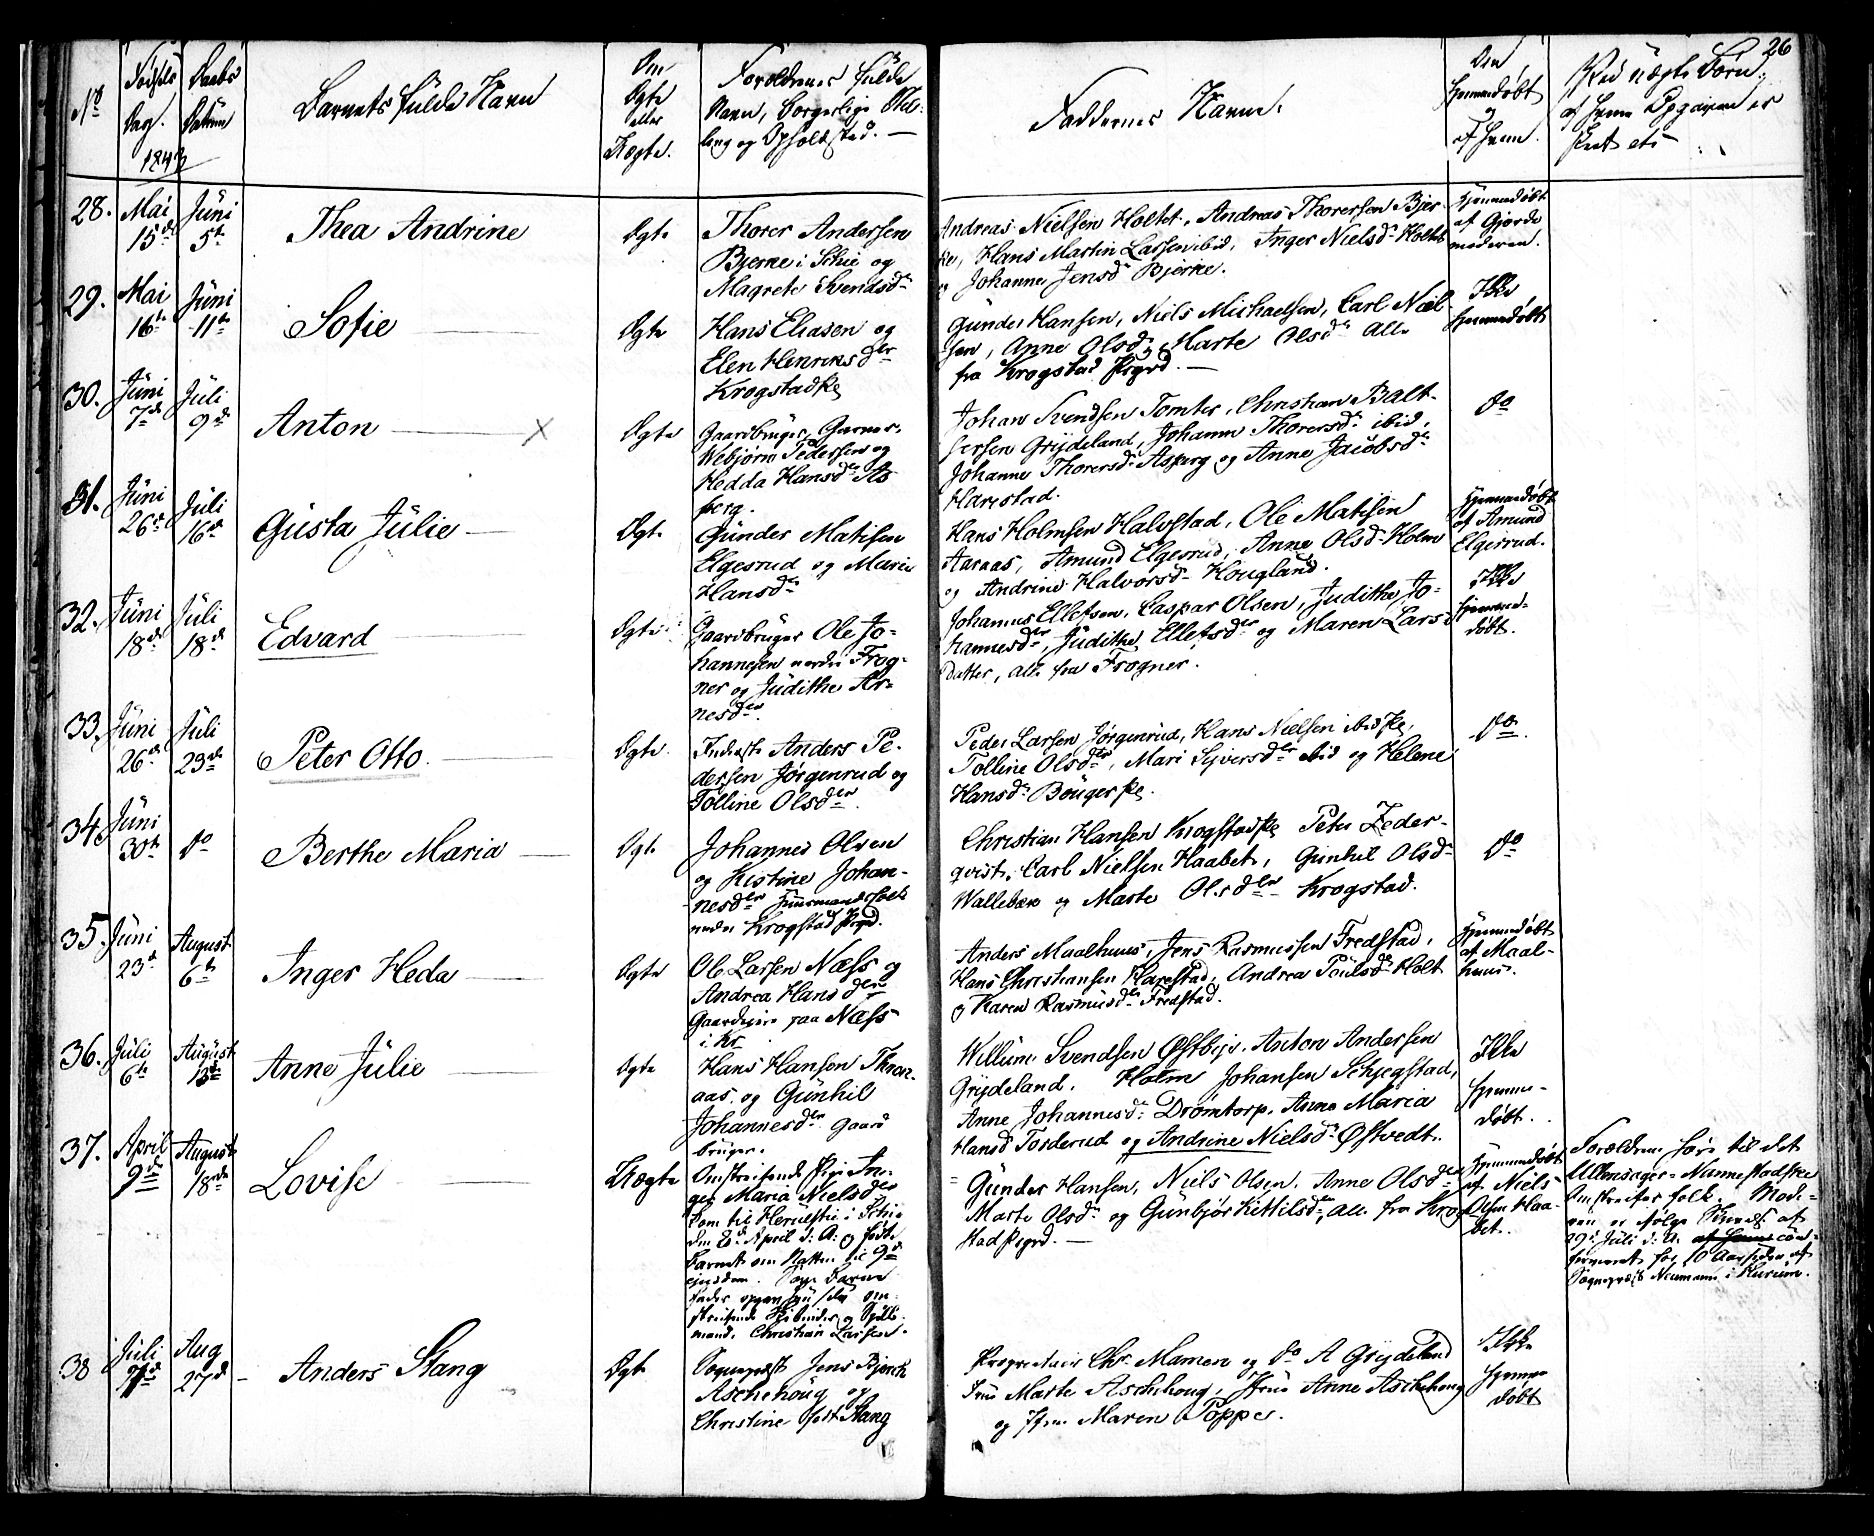 26
No
Fødsels Dag.
Daabs Datum
1843
Barnets fulde Navn
Om Ægte eller Uægte.
Forældrenes fulde
Navn, Borgerlige Stil-
ling og Opholdssted. —
Faddernes Navne.
Om
Hjemmedøbt
og
af hvem.
Ved uægte Børn,
af hvem Opgaven er
skeet etc
28. Mai 15de Juni 5te Thea Andrine Ægte
Thorer Andersen
Bjerke i Schie og
Magrete Svendsdr
Andreas Nielsen Holtet, Andreas Thorersen Bjer-
ke, Hans Martin Larsen ibid, Inger Nielsdr Holtet
og Johanne Jensdr Bjørke.
Hjemmedøbt
af Gjorde
moderen.
29. Mai 16te Juni 11te Sofie Ægte
Hans Eliasen og
Elen Henriksder
Krogstadske
Gunder Hansen, Niels Michaelsen, Carl Niel-
sen, Anne Olsdr, Marte Olsdr Alle
fra Krogstad Psgrd. —
Ikke
hjemmedøbt
30. Juni 7de Juli 9de Anton X Ægte
Gaardbruger, Garver,
Webjørn Pedersen og
Hedda Hansdr As
perg.
Johan Svendsen Tomter, Christian Balt-
sersen Grydeland, Johanne Thorersdr ibid,
Johanne Thorersdr Asperg og Anne Jacobsdr
Harestad.
do
31. Juni 26de Juli 16de Gusta Julie Ægte
Gunder Matisen
Elgesrud og Marie
Hansdr
Hans Holmsen Halvstad, Ole Matisen
Aaraas, Amund Elgesrud, Anne Olsdr Holm
og Andrine Halvorsdr Hougland.
Hjemmedøbt
af Amund
Elgesrud.
32. Juni 18de Juli 18de Edvard Ægte
Gaardbruger Ole Jo-
hannesen nordre Frog-
ner og Judithe Ar-
nesdr.
Johannes Ellefsen, Caspar Olsen, Judithe Jo-
hannesdr, Judithe Ellefsdr og Maren Lars-
datter, alle fra Frogner.
Ikke
hjemme-
døbt.
33. Juni 26de Juli 23de Peter Otto. Ægte
Inderst Anders Pe-
dersen Jørgenrud og
Tolline Olsder.
Peder Larsen Jørgenrud, Hans Nielsen ibidske,
Tolline Olsder, Mari Syversder ibid og Helene
Hansdr Bøugerske.
do.
34. Juni 30te do Berthe Maria Ægte
Johannes Olsen
og Kistine Johan-
nesder Huusmandsfolk
under Krogstad Psgrd.
Christian Hansen Krogstadske Peter Zeder-
qvist, Carl Nielsen Haabet, Gunhil Olsdr
Wallebæk og Marte Olsder Krogstad.
do
35. Juni 23de August 6te Inger Heda Ægte
Ole Larsen Næss og
Andrea Hansder
Gaardejere paa Næss
i Kr.
Anders Maalhuus, Jens Rasmussen Fredstad,
Hans Christiansen Harestad, Andrea Paulsdr Holt
og Karen Rasmusdr Fredstad.
Hjemmedøbt
af Maal-
huus.
36. Juli 6te August 13de Anne Julie Ægte
Hans Hansen Thron-
aas, og Gunhil
Johannesder Gaard
bruger.
Willum Svendsen Østbye, Anton Andersen
Grydeland, Holm Johansen Schjegstad,
Anne Johannesdr Drømtorp, Anne Maria
Hansd Torderud og Andrine Nielsdr Østvedt.
Ikke
hjemme-
døbt.
37. April 9de August 18de Lovise Uægte
Omstreifende Pige In-
ger Maria Nielsder
kom til Herulstie i Schie
den 8de April d. A. og fødte
Barnet om Natten til 9de
ejusdem. Som Barne
fader opgav hun den om-
streifende Skibinder og Spille-
mand, Christian Larsen.
Gunder Hansen, Niels Olsen, Anne Olsder
Marte Olsdr og Gunbjør Kittilsdr, alle fra Krog
stad Psgrd. —
Hjemmedøbt
af Niels
Olsen Haa-
bet.
Forældrene høre til det
Ullensager-Nannestadske
Omstreifer folk. Mode-
ren er ifølge Attest af
29de Juli d. A. af hans con-
firmeret for 10 Aar siden af
Sogneprest Neumann i Hurum.
38 Juli 7de Aug 27de Anders Stang Ægte
Sogneprest Jens Bjerch
Aschehoug og
Christine født Stang
Proprietair Chr. Mamen og do A Grydeland
Frue Marte Aschehoug, Frue Anne Aschehoug
og Jfru Maren Poppe.
Ikke
hjemme
døbt